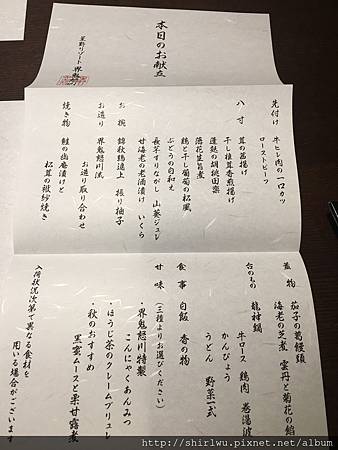 本日のお献立
星野リゾート 界 鬼怒川
先付け 牛ヒレ肉の一口カツ
ローストビーツ
八寸 茸の菊揚げ
干し椎茸香煎揚げ
蓮麩の胡桃田楽
落花生旨煮
鶏と干し葡萄の松風
ぶどうの白和え
長芋すりながし 山葵ジュレ
甘海老の老酒漬け いくら
お椀 錦秋鶏進上 振り柚子
お造り 界鬼怒川流
お造り取り合わせ
焼き物 鮭の幽庵漬けと
松茸の袱紗焼き
蓋物 茄子の葛饅頭
海老の芝煮 雲丹と菊花の餡
台のもの 龍神鍋
牛ロース 鶏肉 巻湯波
かんぴょう
うどん 野菜一式
食事 白飯 香の物
甘味 (三種よりお選びください)
・界鬼怒川特製
こんにゃくあんみつ
・ほうじ茶のクレームブリュレ
・秋のおすすめ
黒蜜ムースと栗甘露煮
入荷状況次第で異なる食材を
用いる場合がございます
http://shirlwu.pixnet.net/blog